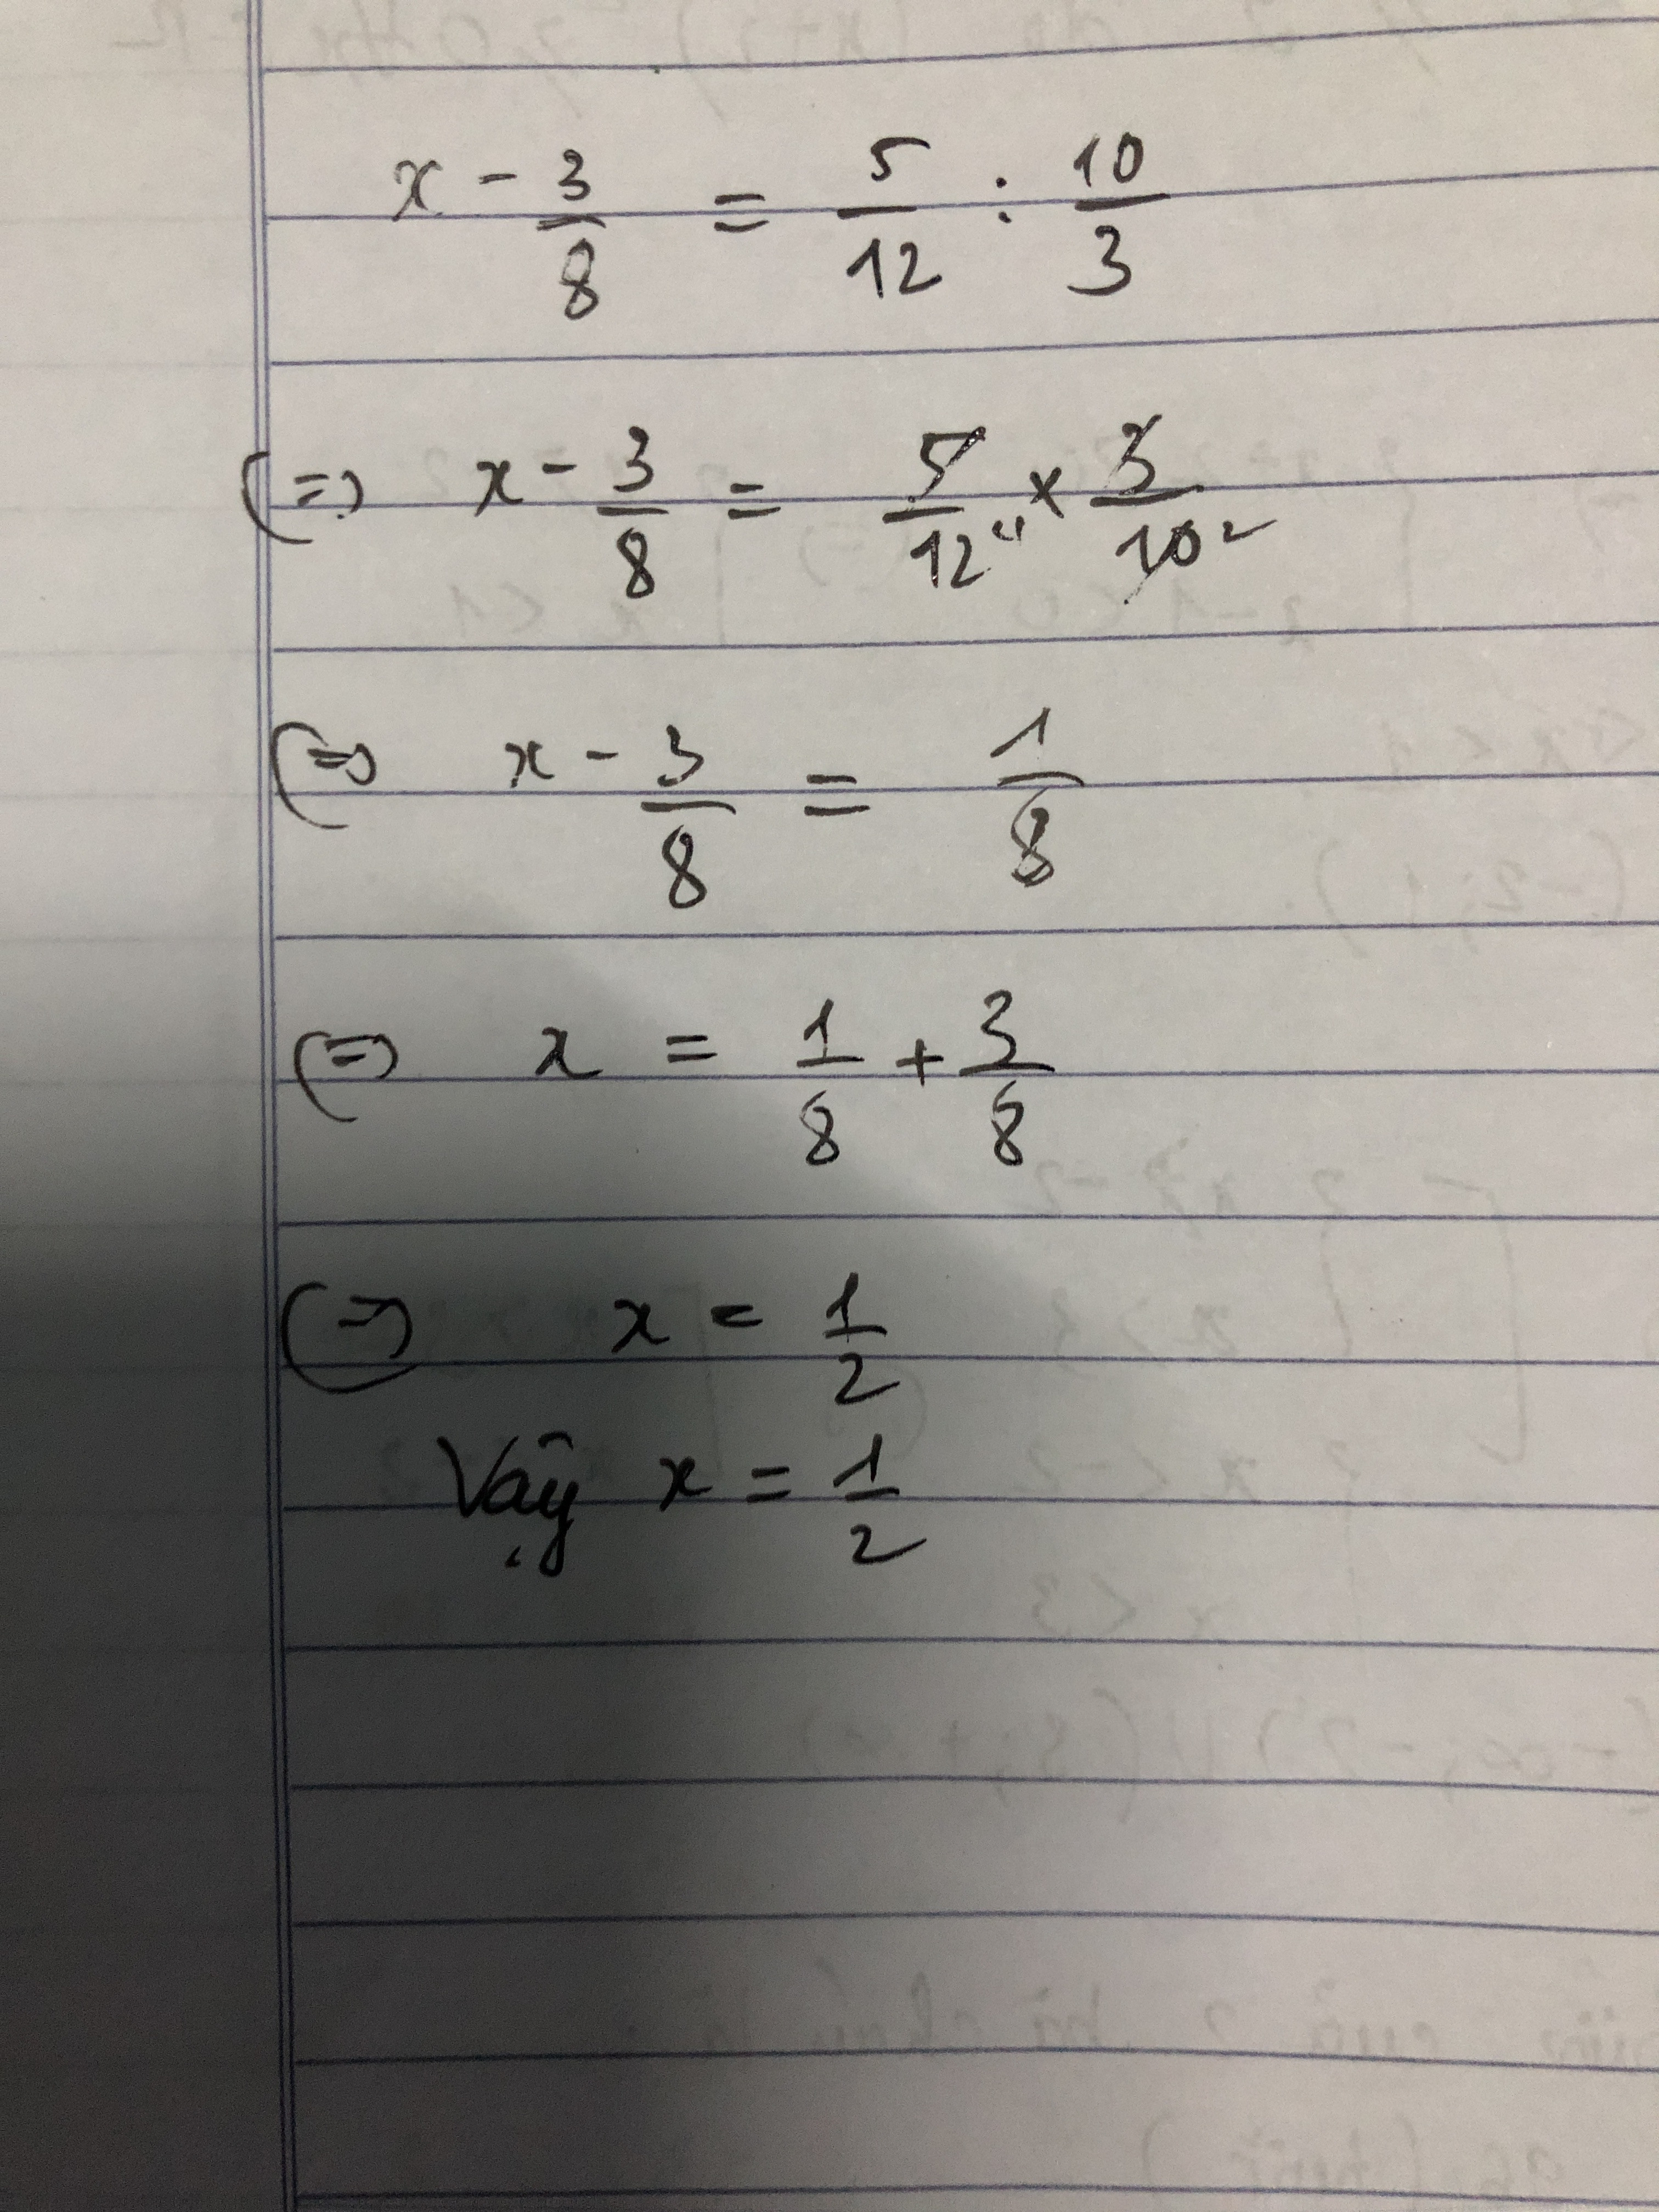 x - 3/8 = 5/12 : 10/3
(=) x - 3/8 = 5/12 4 x 3/10 2
(=) x - 3/8 = 1/8
(=) x = 1/8 + 3/8
(=) x = 1/2
Vậy x = 1/2